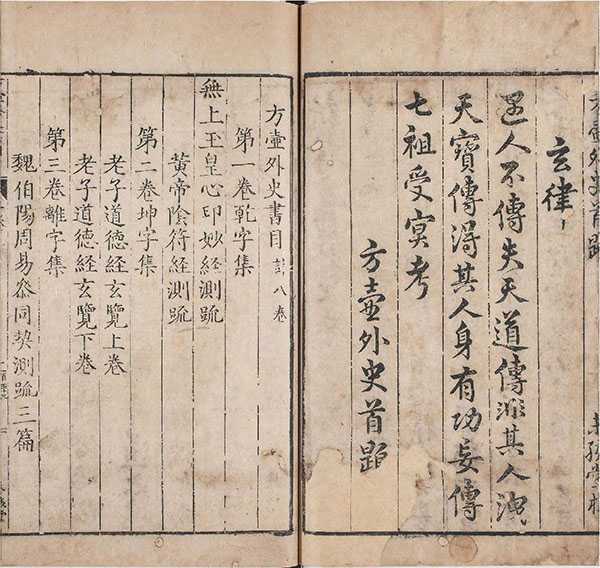 玄律
遇人不傳失天道傳非其人洩
天寶傳得其人身有功妄傳
七祖受冥考
方壺外史首
方壺外史書目 計八卷
第一卷乾字集
無上玉皇心印妙経測疏
黃帝陰符経測疏
第二卷坤字集
老子道德経玄覽上卷
老子道德経玄覽下卷
第三卷離字集
魏伯陽周易叅同契測疏三篇